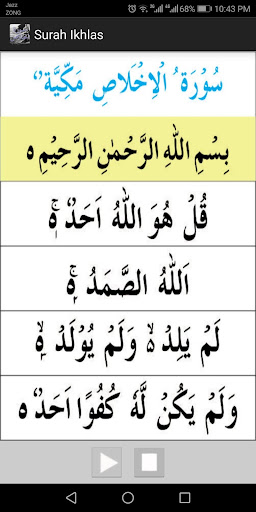 Jazz
ZONG
10:43 PM
Surah Ikhlas
سُوْرَةُ الْاِخْلَاصِ مَكِّيَّةٌ
بِسْمِ اللهِ الرَّحْمٰنِ الرَّحِيْمِ ه
قُلْ هُوَ اللهُ اَحَدٌ ۚ ه
اَللهُ الصَّمَدُ ۚ ه
لَمْ يَلِدْ ۙ ه وَلَمْ يُوْلَدْ ۙ ه
وَلَمْ يَكُنْ لَّهٗ كُفُوًا اَحَدٌ ه